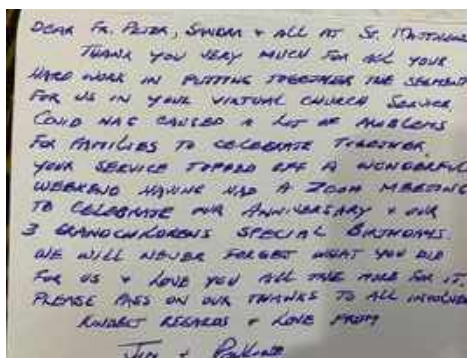 DEAR FR. PETER, SANDRA + ALL AT ST. MATTHEWS
THANK YOU VERY MUCH FOR ALL YOUR
HARD WORK IN PUTTING TOGETHER THE SEGMENT
FOR US IN YOUR VIRTUAL CHURCH SERVICE.
COVID HAS CAUSED A LOT OF PROBLEMS
FOR FAMILIES TO CELEBRATE TOGETHER.
YOUR SERVICE TOPPED OFF A WONDERFUL
WEEKEND HAVING HAD A ZOOM MEETING
TO CELEBRATE OUR ANNIVERSARY + OUR
3 GRANDCHILDRENS SPECIAL BIRTHDAYS.
WE WILL NEVER FORGET WHAT YOU DID
FOR US + LOVE YOU ALL THE MORE FOR IT.
PLEASE PASS ON OUR THANKS TO ALL INVOLVED
KINDEST REGARDS + LOVE FROM
JIM + PAULINE